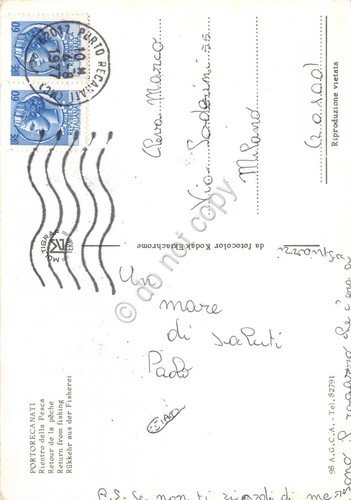 PORTORECANATI
Rientro della Pesca
Retour de la pêche
Return from fishing
Rükkehr aus der Fisherei
Un
mare
di saluti
Paolo
CIAO
P.S. Se non ti ricordi di me
sono il ragazzo che c'era a
da fotocolor Kodak Ektachrome
60
60
PORTO RECANATI
Marco
Via
55
Milano
(20100)
Riproduzione vietata
98 A.G.C.A. - Tel. 82791
© do not copy